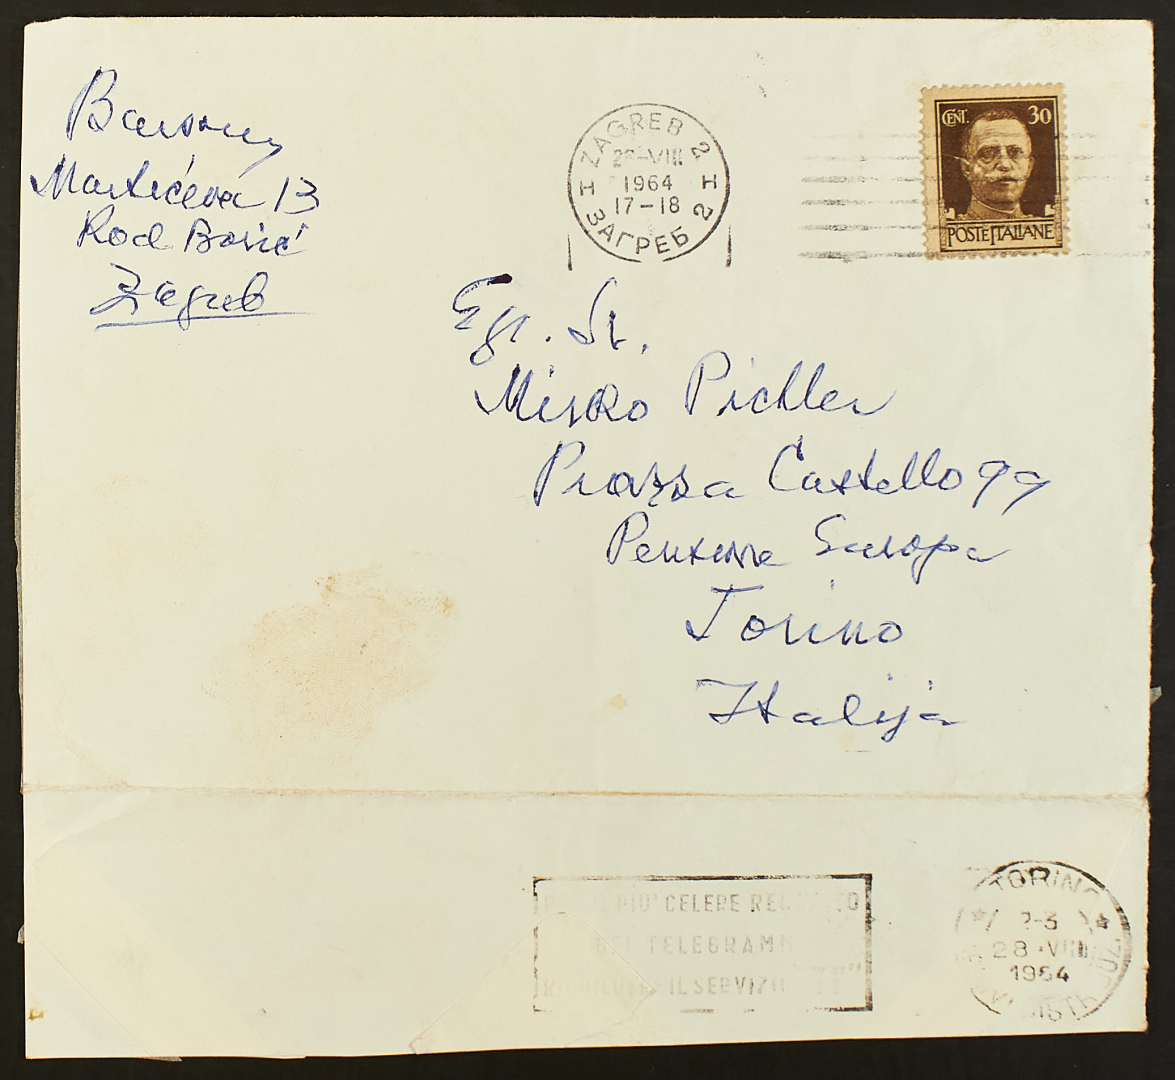 Barsony
Martićeva 13
Kod Borić
Zagreb
ZAGREB 2
VIII
1964
17-18
ЗАГРЕБ 2
CENT. 30
POSTE ITALIANE
Egr. St.
Mirko Pichler
Piazza Castello 99
Pensione Europa
Torino
Italija
PIU' CELERE
TELEGRAMM
IL SERVIZIO
TORINO
2-3
28 · VIII
1964